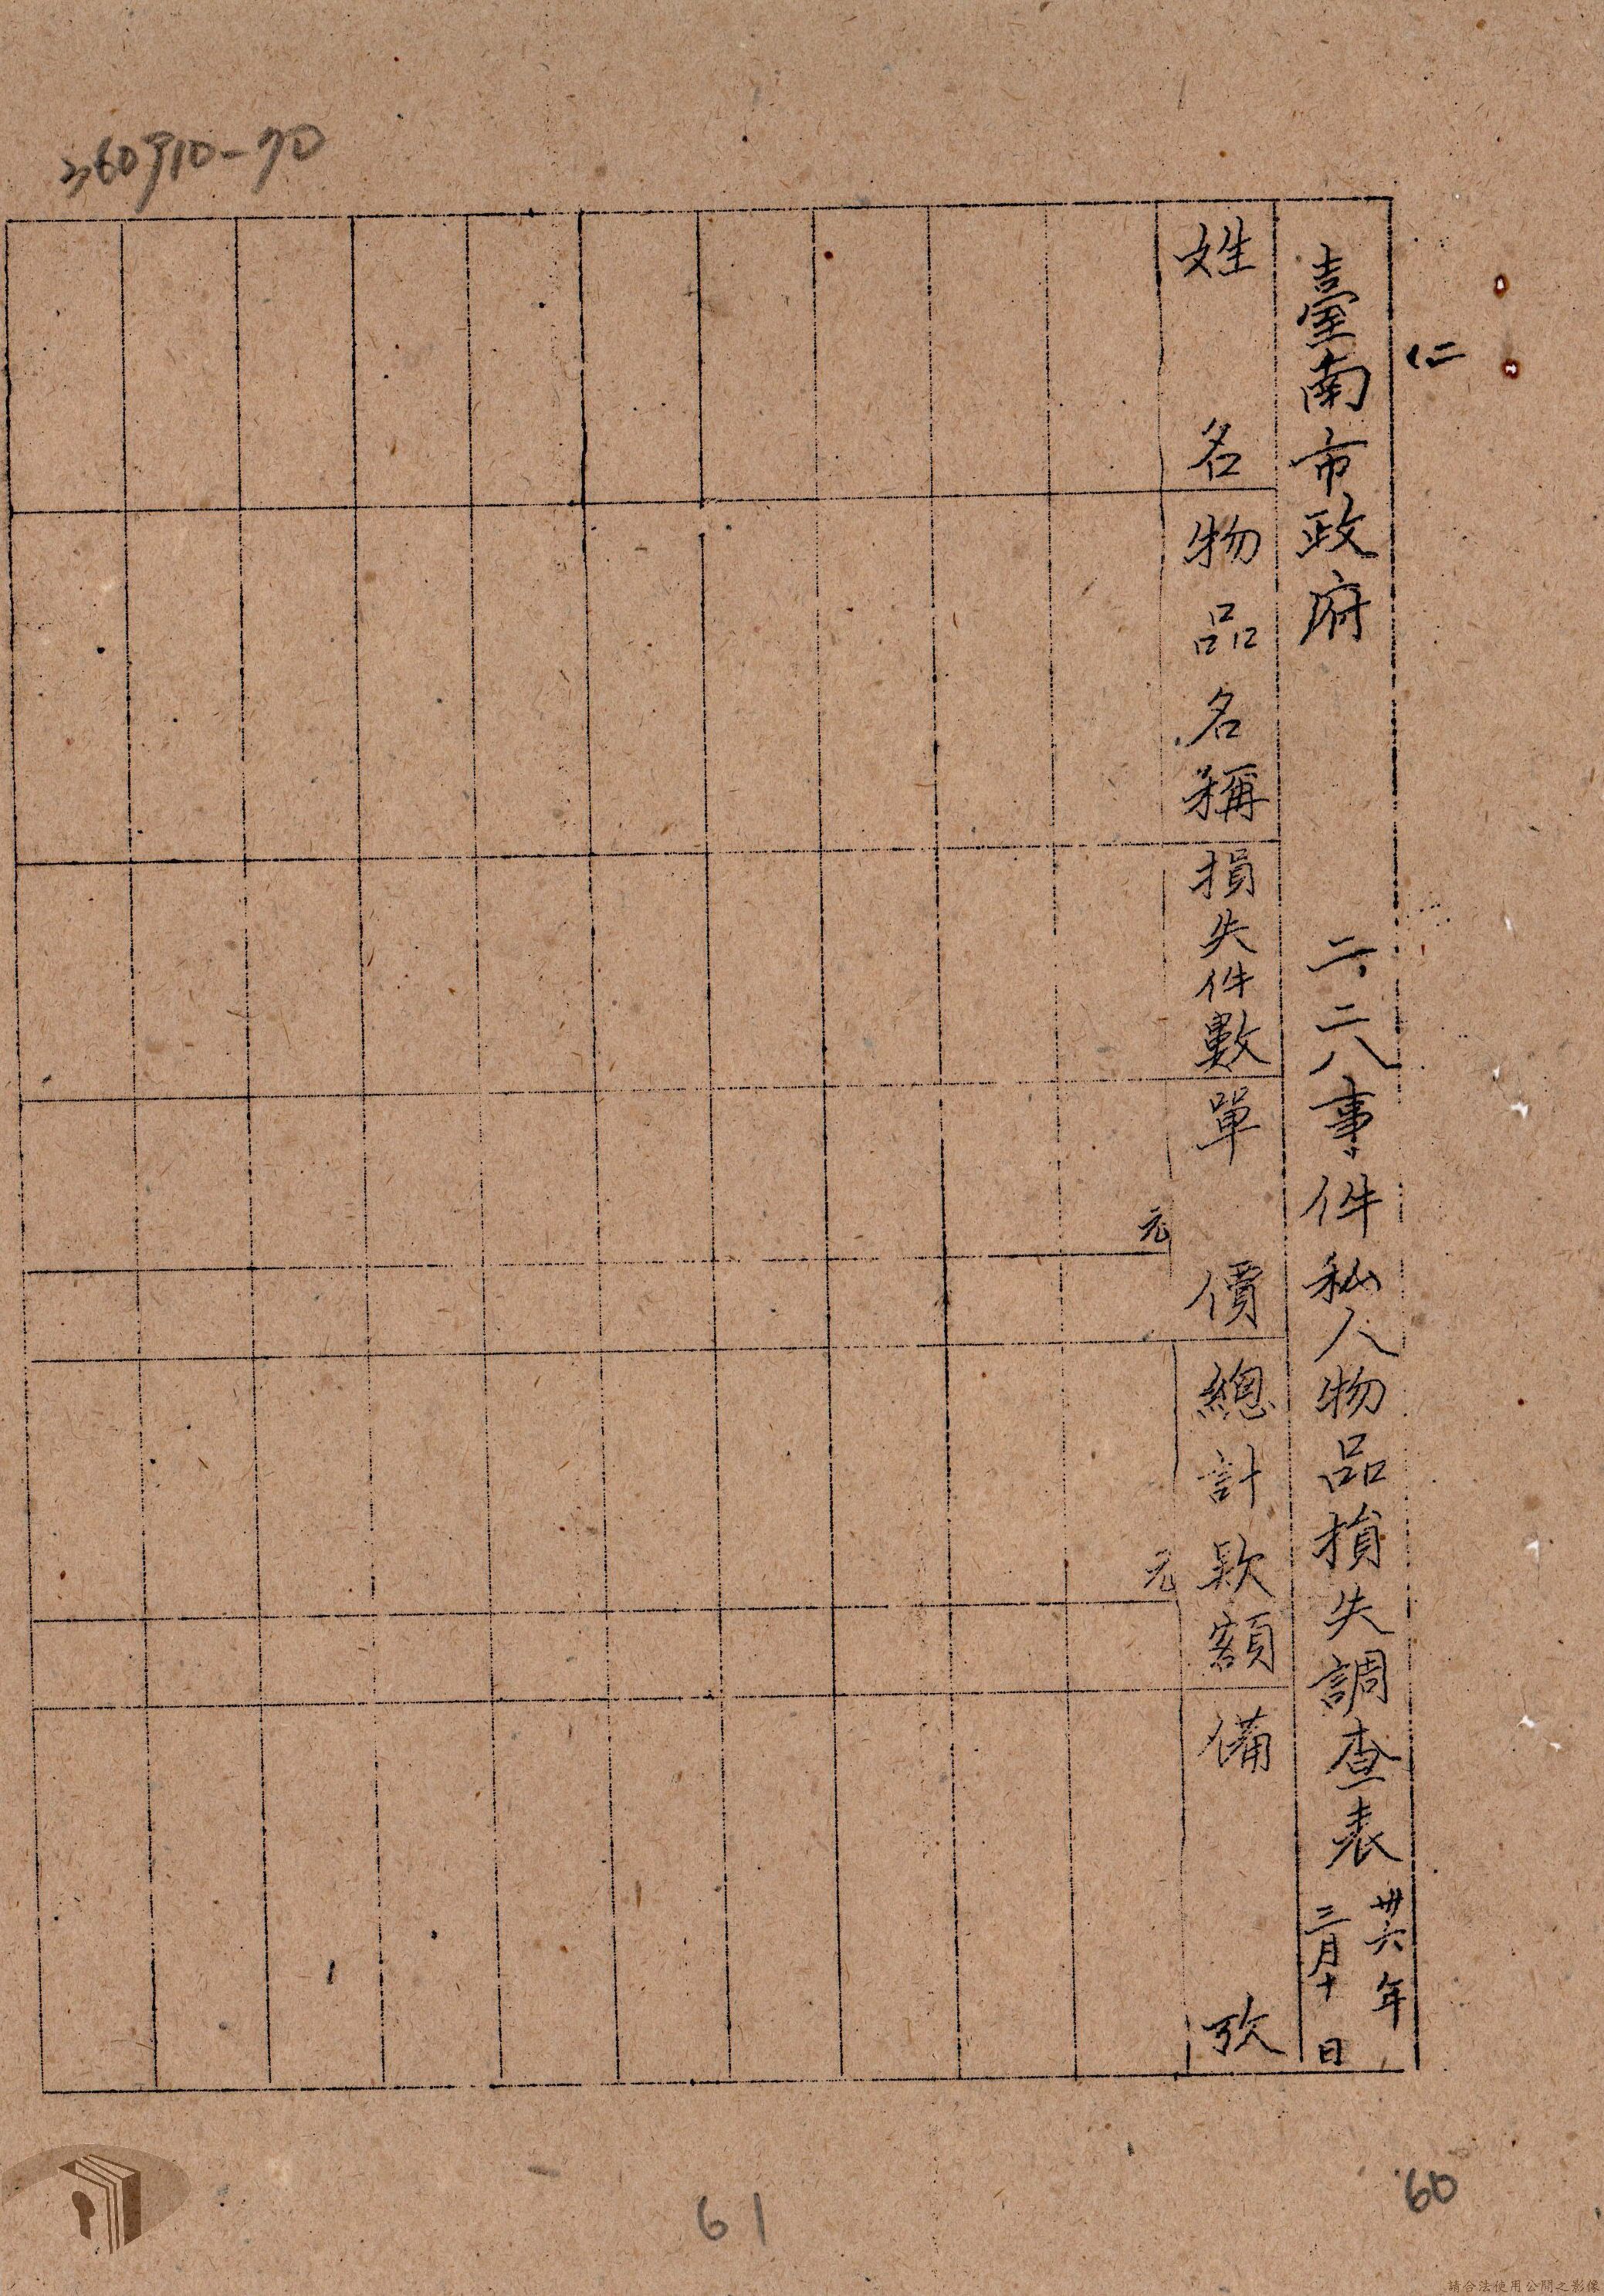 臺南市政府 二、二八事件私人物品損失調查表 卅六年三月十日
姓名
物品名稱
損失件數
單價
總計款額
備攷
元
元
61
60
請合法使用公開之影像